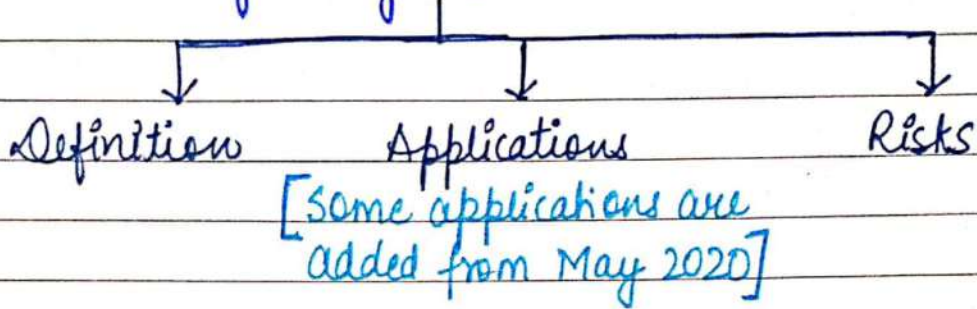 Definition Applications Risks
[Some applications are
added from May 2020]